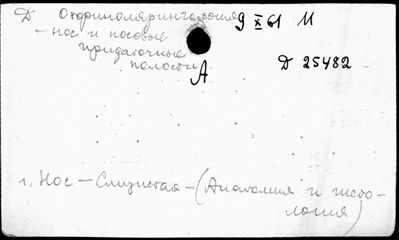 Д Оториноларингология 9 X 61 М
- нос и носовые
придаточные
полости
А
Д 25482
1. Нос - Слизистая - (Анатомия и гисто-
логия)